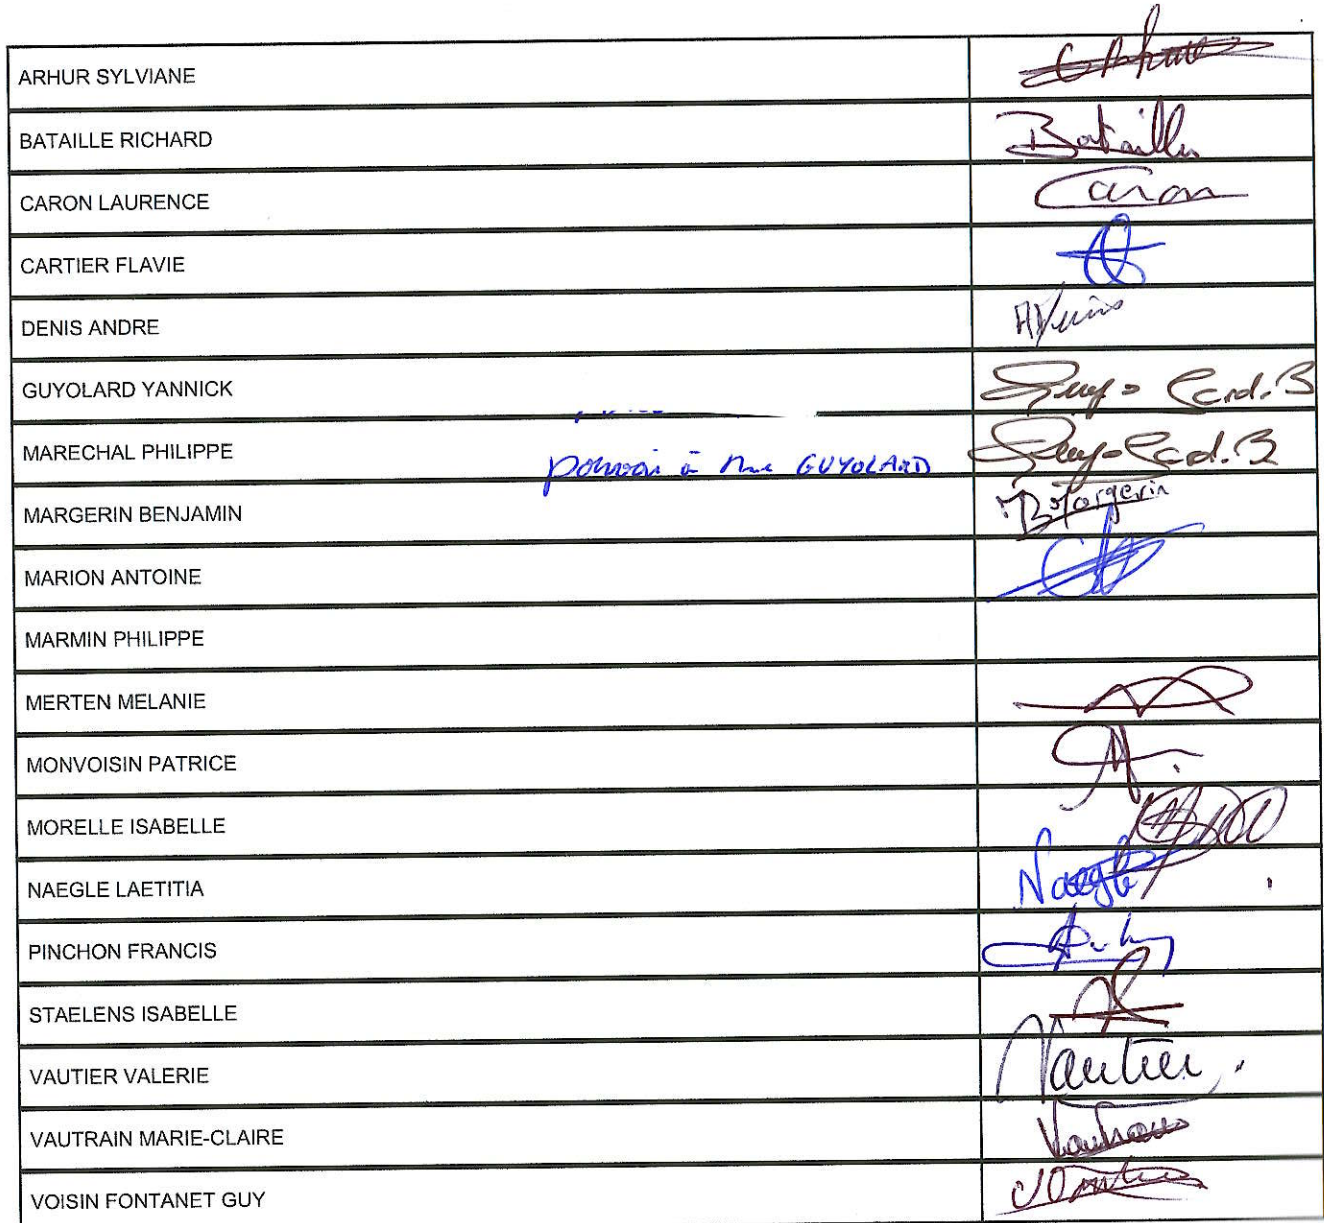 ARHUR SYLVIANE
BATAILLE RICHARD Bataille
CARON LAURENCE Caron
CARTIER FLAVIE
DENIS ANDRE
GUYOLARD YANNICK
MARECHAL PHILIPPE pouvoir à Mme GUYOLARD
MARGERIN BENJAMIN Margerin
MARION ANTOINE
MARMIN PHILIPPE
MERTEN MELANIE
MONVOISIN PATRICE
MORELLE ISABELLE
NAEGLE LAETITIA Naegle
PINCHON FRANCIS
STAELENS ISABELLE
VAUTIER VALERIE Vautier
VAUTRAIN MARIE-CLAIRE Vautrain
VOISIN FONTANET GUY